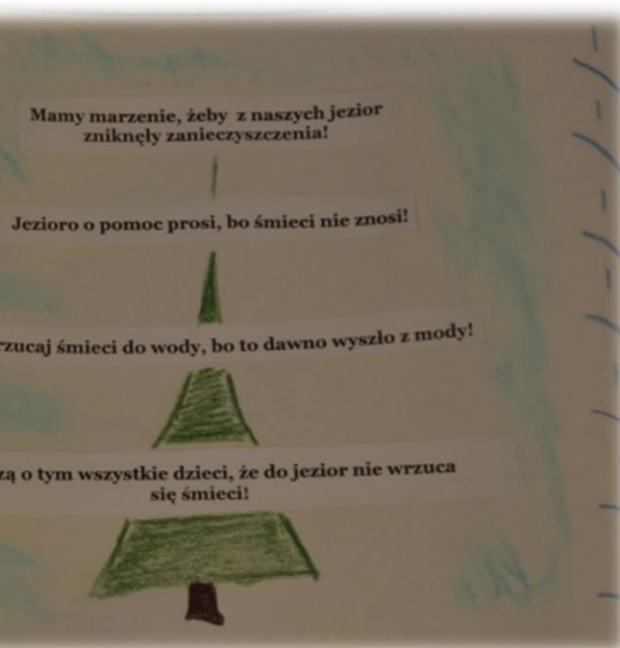 Mamy marzenie, żeby z naszych jezior
zniknęły zanieczyszczenia!
Jezioro o pomoc prosi, bo śmieci nie znosi!
śmieci do wody, bo to dawno wyszło z mody!
o tym wszystkie dzieci, że do jezior nie wrzuca
się śmieci!